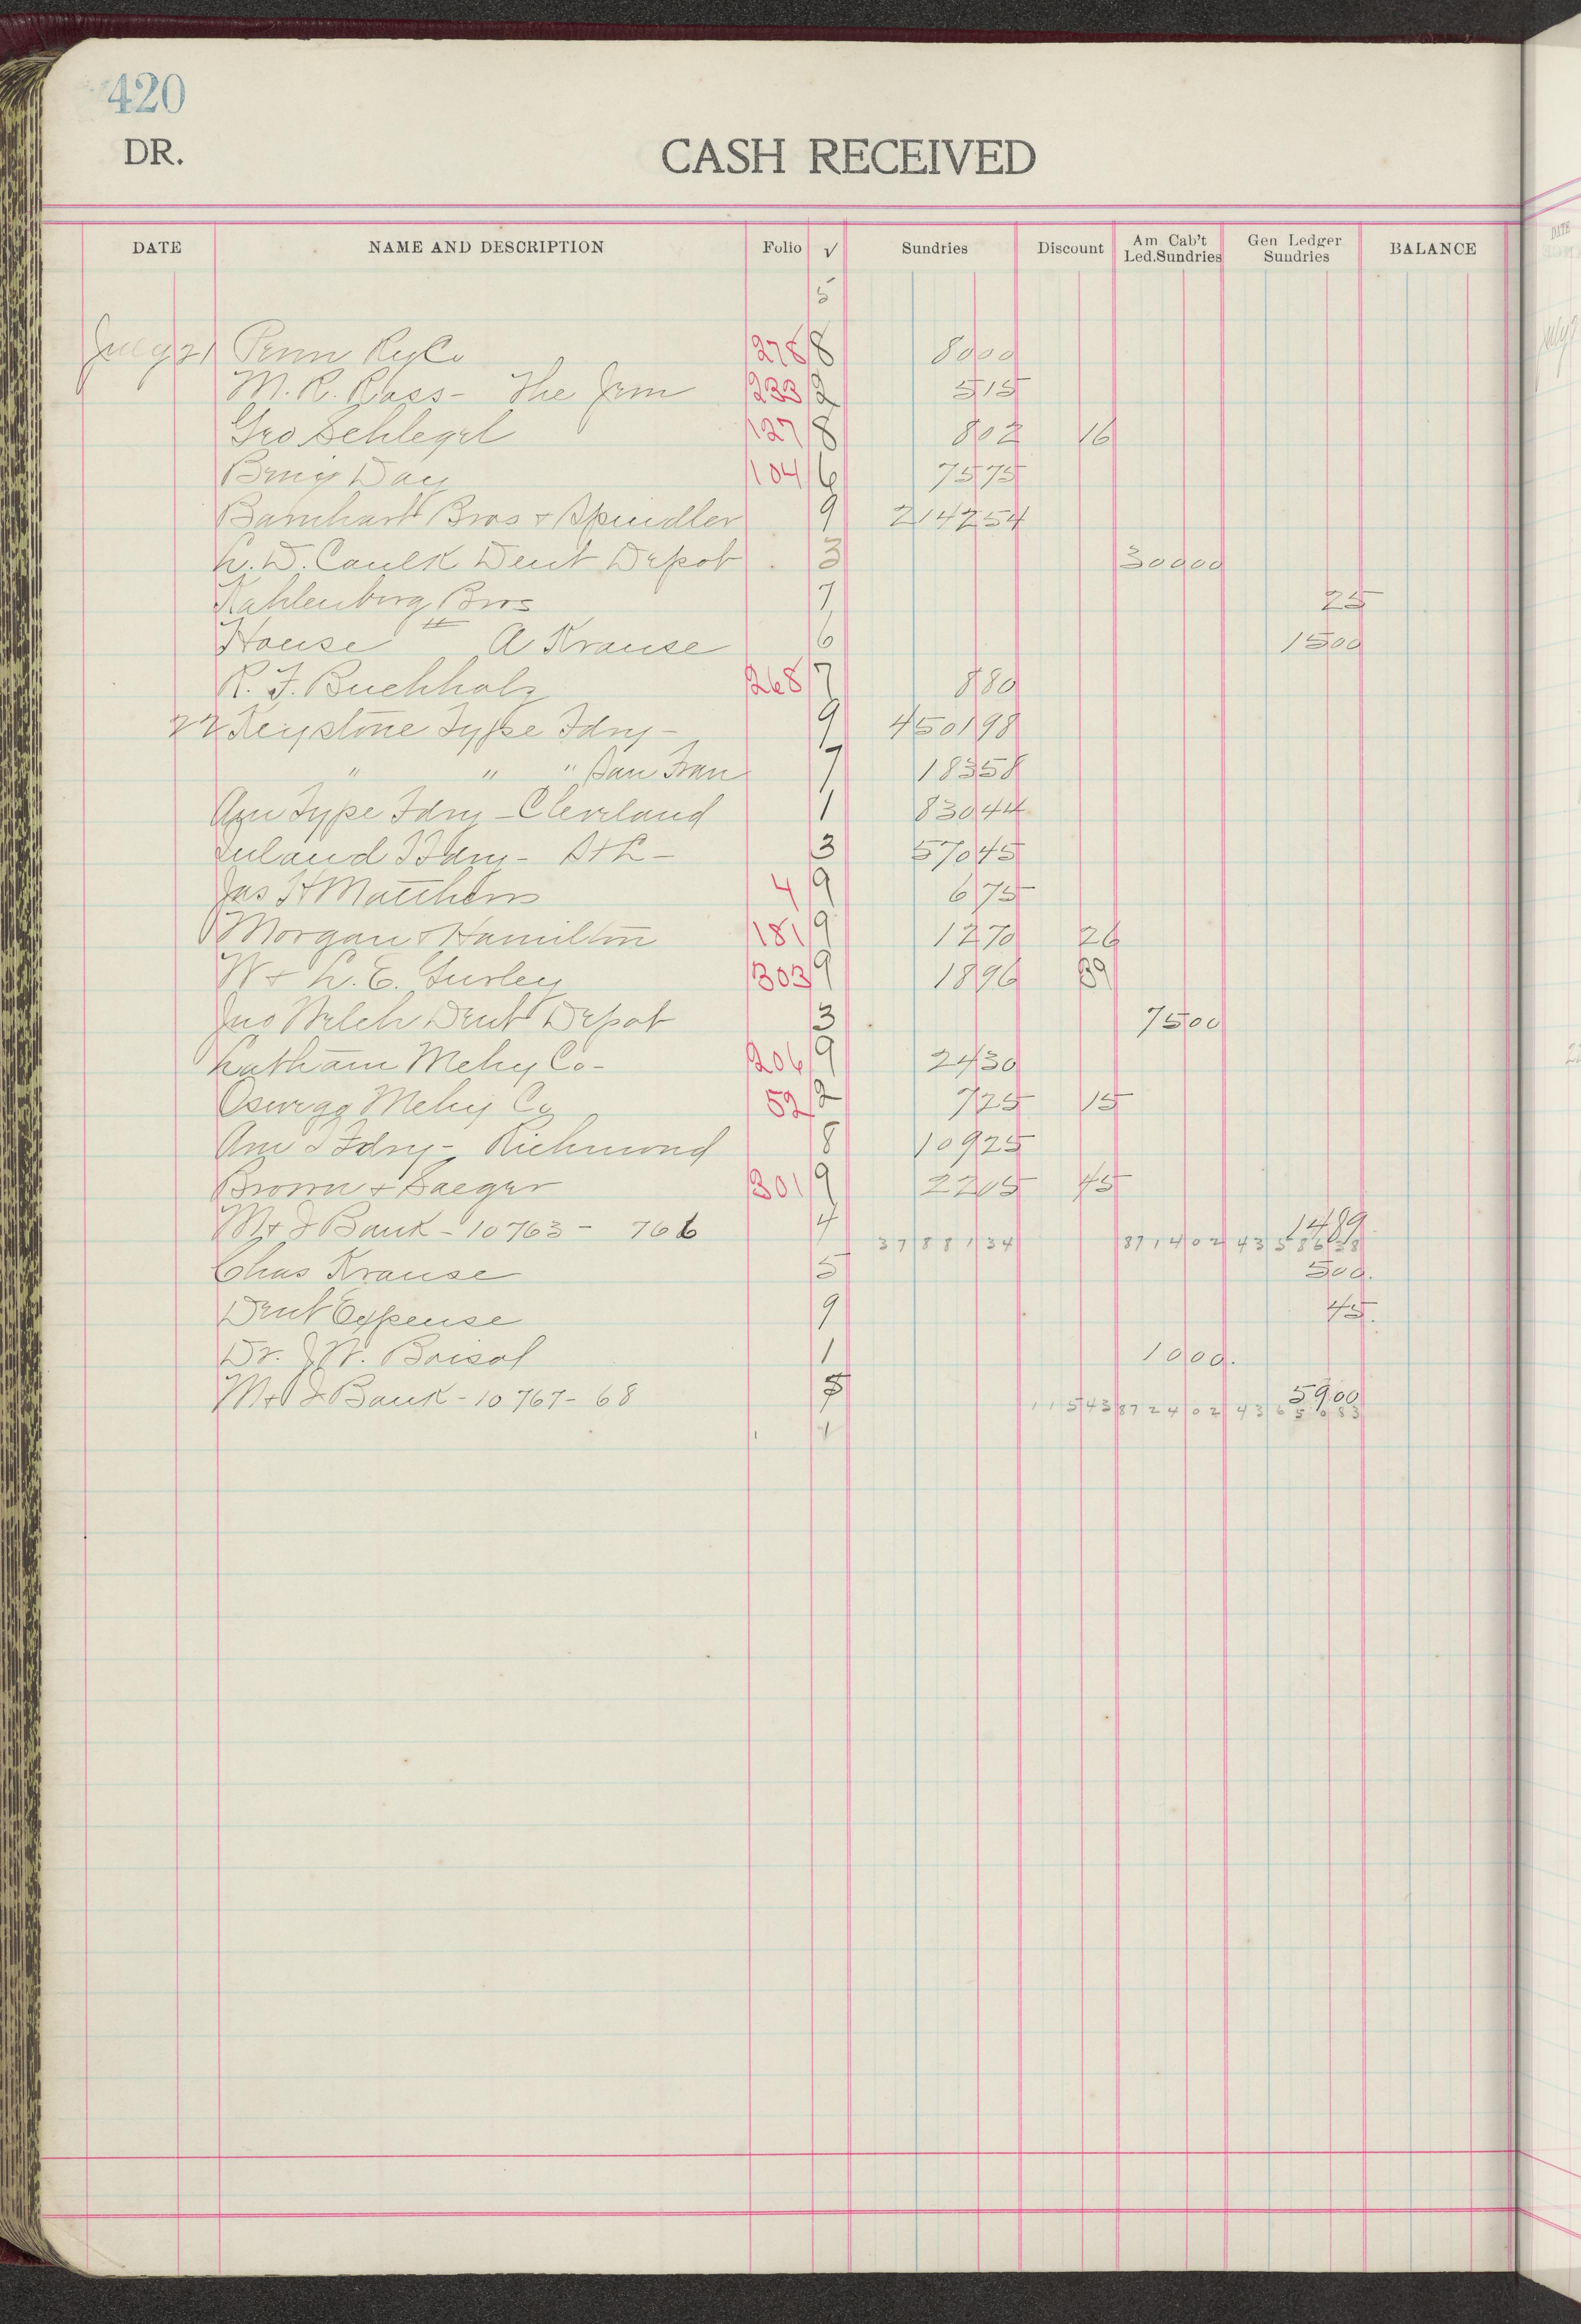 420
DR.
CASH RECEIVED
DATE NAME AND DESCRIPTION Folio √ Sundries Discount Am Cab't Led.Sundries Gen Ledger Sundries BALANCE
5
July 21 Penn Ry Co 278 8 8000
M. R. Ross - The Jrm 233 2 515
Geo Schlegel 127 8 802 16
Benj Day 104 6 7575
Barnhart Bros + Spindler 9 214254
L. D. Caulk Dent Depot 3 30000
Kahlenberg Bros 7 25
House " A Krause 6 1500
R. F. Buchholz 268 7 880
22 Keystone Type Fdry - 9 450198
" " " San Fran 7 18358
Am Type Fdry - Cleveland 1 83044
Inland T Fdry - St L - 3 57045
Jas H Matthews 4 9 675
Morgan & Hamilton 181 9 1270 26
W + L. E. Gurley 303 9 1896 39
Jno Welch Dent Depot 3 7500
Latham Mchy Co - 206 9 2430
Oswego Mchy Co 52 2 725 15
Am T Fdry - Richmond 8 10925
Brown + Saeger 301 9 2205 45
M + I Bank - 10763 - 766 4 1489
3788134 871402 4358638
Chas Krause 5 500.
Dent Expense 9 45.
Dr. J W. 1 1000.
M + I Bank - 10767 - 68 5900
11543 872402 4365083
1